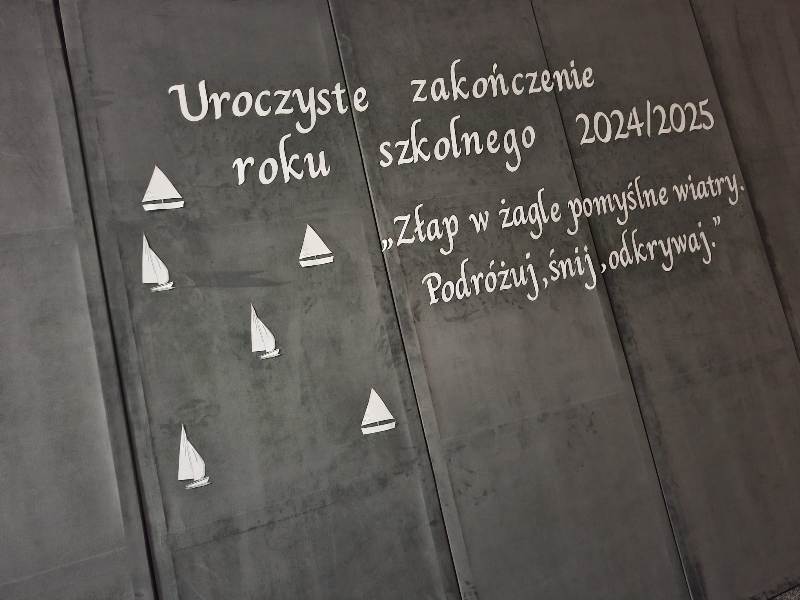 Uroczyste zakończenie
roku szkolnego 2024/2025
„Złap w żagle pomyślne wiatry.
Podróżuj,śnij,odkrywaj."